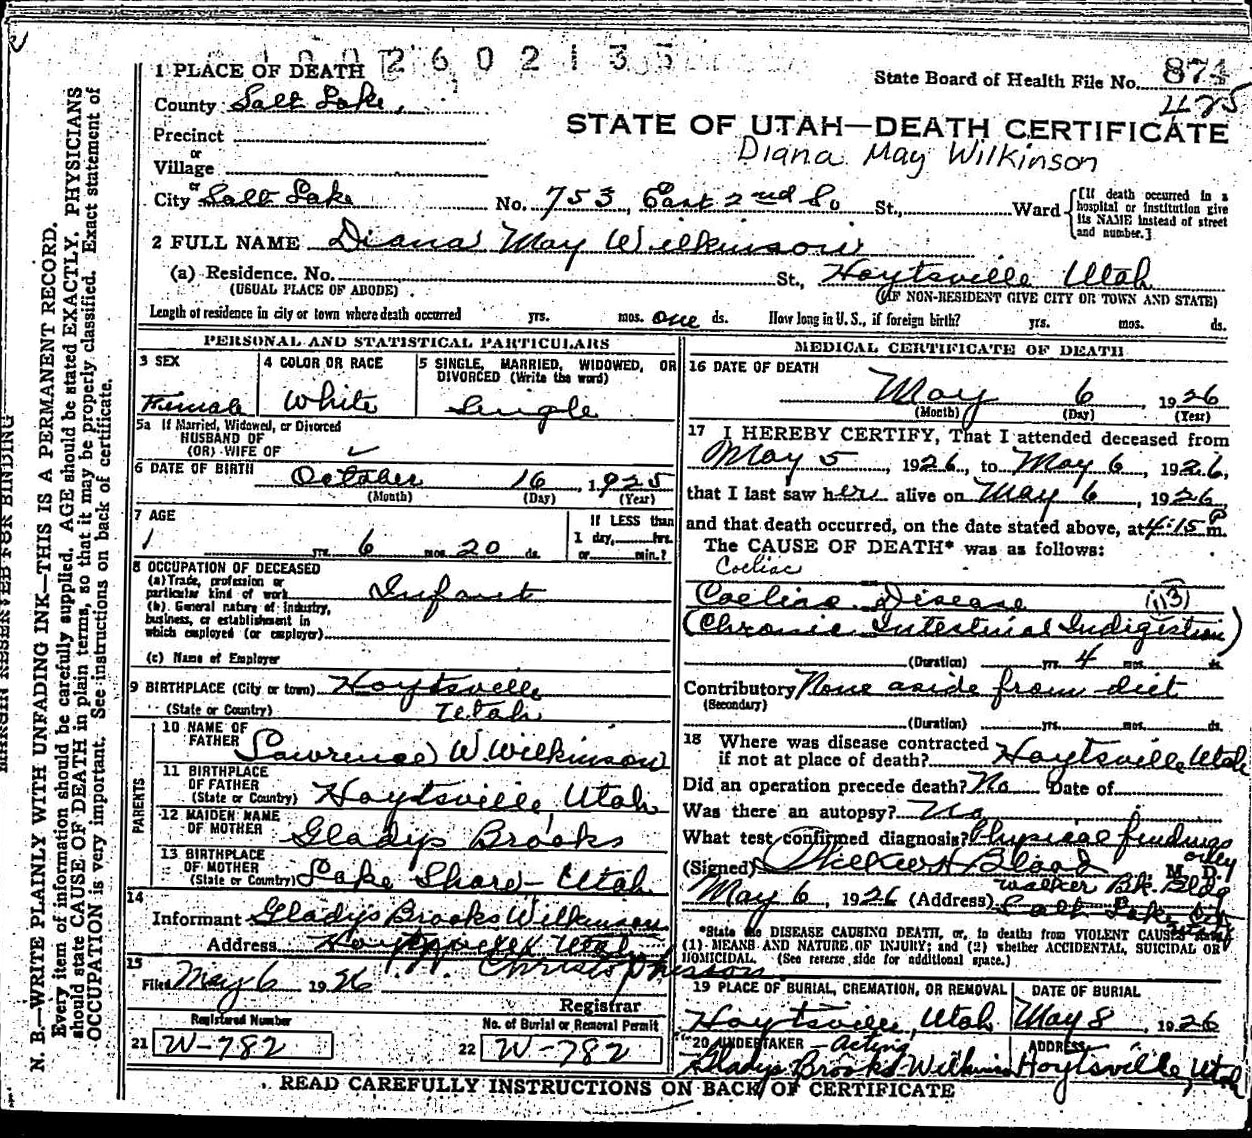 1 0 0 2 6 0 2 1 3 5
1 PLACE OF DEATH
State Board of Health File No. 874
425
County Salt Lake,
STATE OF UTAH—DEATH CERTIFICATE
Precinct
Diana May Wilkinson
or
Village
or
City Salt Lake No. 753, East 2nd So St., Ward
[If death occurred in a hospital or institution give its NAME instead of street and number.]
2 FULL NAME Diana May Wilkinson
(a) Residence. No. St., Hoytsville Utah
(USUAL PLACE OF ABODE) (IF NON-RESIDENT GIVE CITY OR TOWN AND STATE)
Length of residence in city or town where death occurred yrs. mos. one ds. How long in U. S., if foreign birth? yrs. mos. ds.
PERSONAL AND STATISTICAL PARTICULARS
3 SEX
Female
4 COLOR OR RACE
White
5 SINGLE, MARRIED, WIDOWED, OR DIVORCED (Write the word)
Single
5a If Married, Widowed, or Divorced
HUSBAND OF
(OR) WIFE OF
6 DATE OF BIRTH October 16, 1925
(Month) (Day) (Year)
7 AGE
yrs. 6 mos. 20 ds.
If LESS than
1 day, hrs.
or min.?
8 OCCUPATION OF DECEASED
(a) Trade, profession or
particular kind of work Infant
(b) General nature of industry,
business, or establishment in
which employed (or employer)
(c) Name of Employer
9 BIRTHPLACE (City or town) Hoytsville
(State or Country) Utah
PARENTS
10 NAME OF
FATHER Lawrence W. Wilkinson
11 BIRTHPLACE
OF FATHER
(State or Country) Hoytsville, Utah
12 MAIDEN NAME
OF MOTHER Gladys Brooks
13 BIRTHPLACE
OF MOTHER
(State or Country) Lake Shore - Utah
14
Informant Gladys Brooks Wilkinson
Address Hoytsville Utah
15
Filed May 6 1926
Registrar
Registered Number
21 W-782
No. of Burial or Removal Permit
22 W-782
MEDICAL CERTIFICATE OF DEATH
16 DATE OF DEATH
May 6, 1926
(Month) (Day) (Year)
17 I HEREBY CERTIFY, That I attended deceased from
May 5, 1926, to May 6, 1926,
that I last saw her alive on May 6, 1926,
and that death occurred, on the date stated above, at 4:15 P m.
The CAUSE OF DEATH* was as follows:
Coeliac
Coeliac Disease (113)
(Chronic Intestinal Indigestion)
(Duration) yrs. 4 mos. ds.
Contributory None aside from diet
(Secondary)
(Duration) yrs. mos. ds.
18 Where was disease contracted
if not at place of death? Hoytsville Utah
Did an operation precede death? No Date of
Was there an autopsy? No
What test confirmed diagnosis? Physical findings only
(Signed) M. D.
May 6, 1926 (Address) Walker Bk. Bldg
Salt Lake City
*State the DISEASE CAUSING DEATH, or, in deaths from VIOLENT CAUSES, state
(1) MEANS AND NATURE OF INJURY; and (2) whether ACCIDENTAL, SUICIDAL OR
HOMICIDAL. (See reverse side for additional space.)
19 PLACE OF BURIAL, CREMATION, OR REMOVAL
Hoytsville, Utah
DATE OF BURIAL
May 8, 1926
20 UNDERTAKER - Acting
Gladys Brooks Wilkinson
ADDRESS
Hoytsville, Utah
READ CAREFULLY INSTRUCTIONS ON BACK OF CERTIFICATE
MARGIN RESERVED FOR BINDING
N. B.—WRITE PLAINLY WITH UNFADING INK—THIS IS A PERMANENT RECORD.
Every item of information should be carefully supplied. AGE should be stated EXACTLY. PHYSICIANS
should state CAUSE OF DEATH in plain terms, so that it may be properly classified. Exact statement of
OCCUPATION is very important. See instructions on back of certificate.